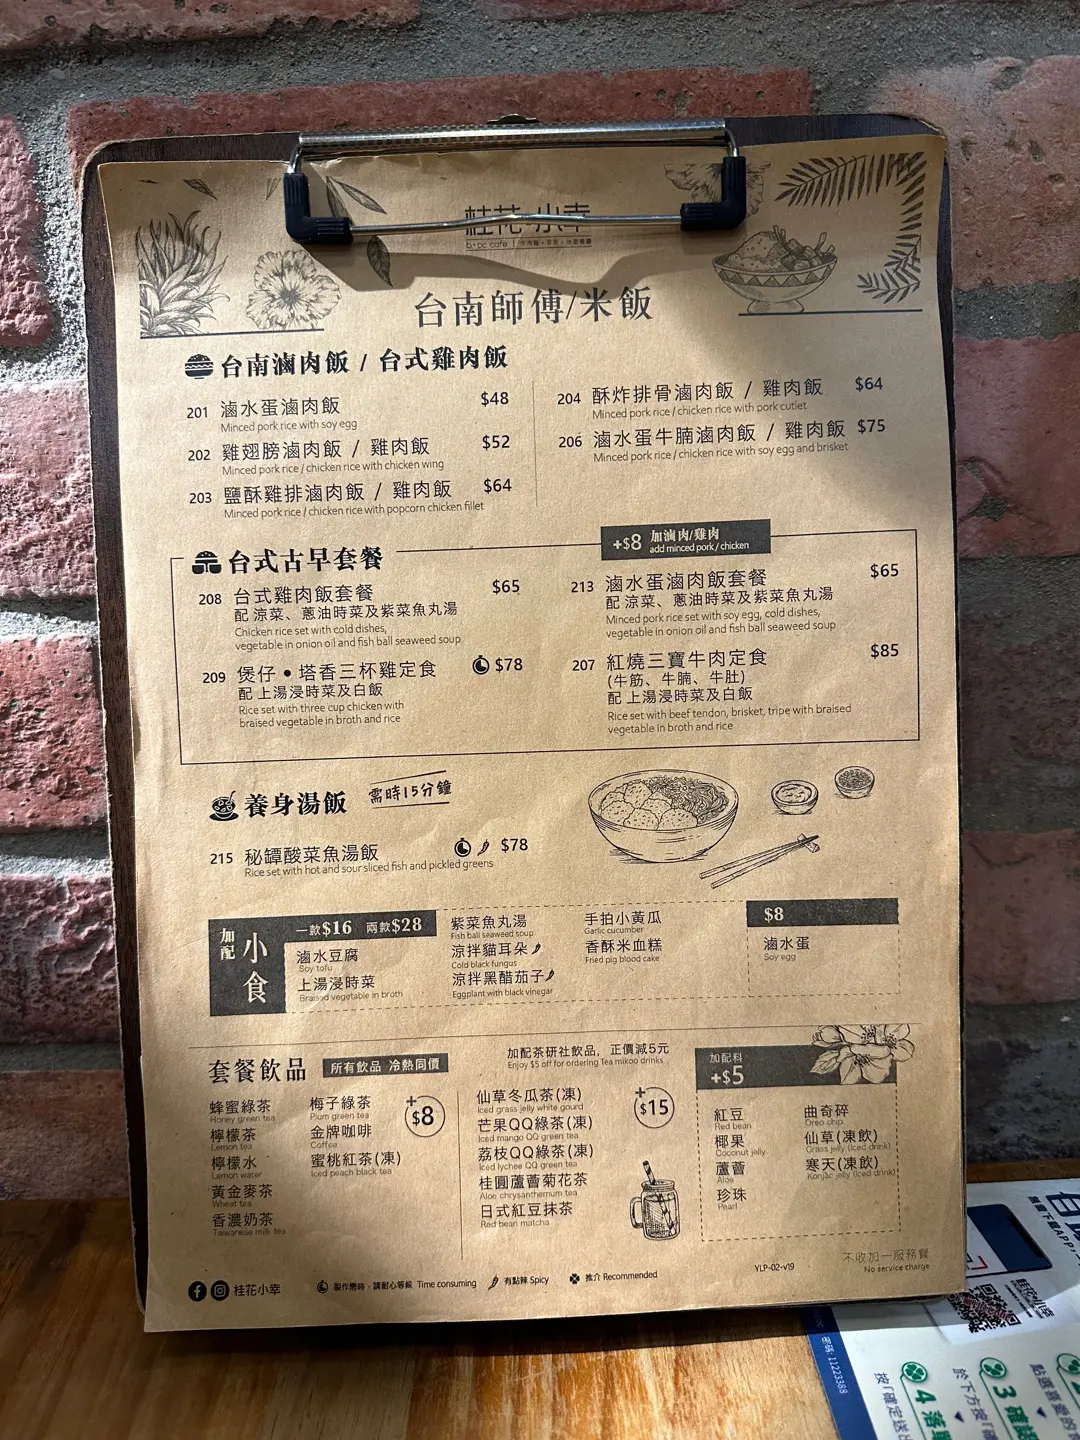 桂花小幸
b+bc cafe
台南師傅/米飯
台南滷肉飯 / 台式雞肉飯
201 滷水蛋滷肉飯 $48
Minced pork rice with soy egg
202 雞翅膀滷肉飯 / 雞肉飯 $52
Minced pork rice / chicken rice with chicken wing
203 鹽酥雞排滷肉飯 / 雞肉飯 $64
Minced pork rice / chicken rice with popcorn chicken fillet
204 酥炸排骨滷肉飯 / 雞肉飯 $64
Minced pork rice / chicken rice with pork cutlet
206 滷水蛋牛腩滷肉飯 / 雞肉飯 $75
Minced pork rice / chicken rice with soy egg and brisket
台式古早套餐
+$8 加滷肉/雞肉
add minced pork / chicken
208 台式雞肉飯套餐 $65
配 涼菜、蔥油時菜及紫菜魚丸湯
Chicken rice set with cold dishes,
vegetable in onion oil and fish ball seaweed soup
209 煲仔•塔香三杯雞定食 $78
配 上湯浸時菜及白飯
Rice set with three cup chicken with
braised vegetable in broth and rice
213 滷水蛋滷肉飯套餐 $65
配 涼菜、蔥油時菜及紫菜魚丸湯
Minced pork rice set with soy egg, cold dishes,
vegetable in onion oil and fish ball seaweed soup
207 紅燒三寶牛肉定食 $85
(牛筋、牛腩、牛肚)
配 上湯浸時菜及白飯
Rice set with beef tendon, brisket, tripe with braised
vegetable in broth and rice
養身湯飯 需時15分鐘
215 秘罈酸菜魚湯飯 $78
Rice set with hot and sour sliced fish and pickled greens
加配 小食
一款$16 兩款$28
滷水豆腐
Soy tofu
上湯浸時菜
Braised vegetable in broth
紫菜魚丸湯
Fish ball seaweed soup
涼拌貓耳朵
Cold black fungus
涼拌黑醋茄子
Eggplant with black vinegar
手拍小黃瓜
Garlic cucumber
香酥米血糕
Fried pig blood cake
$8
滷水蛋
Soy egg
套餐飲品 所有飲品 冷熱同價
蜂蜜綠茶
Honey green tea
檸檬茶
Lemon tea
檸檬水
Lemon water
黃金麥茶
Wheat tea
香濃奶茶
Taiwanese milk tea
梅子綠茶
Plum green tea
金牌咖啡
Coffee
蜜桃紅茶(凍)
Iced peach black tea
+$8
加配茶研社飲品, 正價減5元
Enjoy $5 off for ordering Tea mikoo drinks
仙草冬瓜茶(凍)
Iced grass jelly white gourd
芒果QQ綠茶(凍)
Iced mango QQ green tea
荔枝QQ綠茶(凍)
Iced lychee QQ green tea
桂圓蘆薈菊花茶
Aloe chrysanthemum tea
日式紅豆抹茶
Red bean matcha
+$15
加配料
+$5
紅豆
Red bean
椰果
Coconut jelly
蘆薈
Aloe
珍珠
Pearl
曲奇碎
Oreo chip
仙草(凍飲)
Grass jelly (Iced drink)
寒天(凍飲)
Konjac jelly (Iced drink)
不收加一服務費
No service charge
YLP-02-v19
桂花小幸
製作需時,請耐心等候 Time consuming
有點辣 Spicy
推介 Recommended
11223388